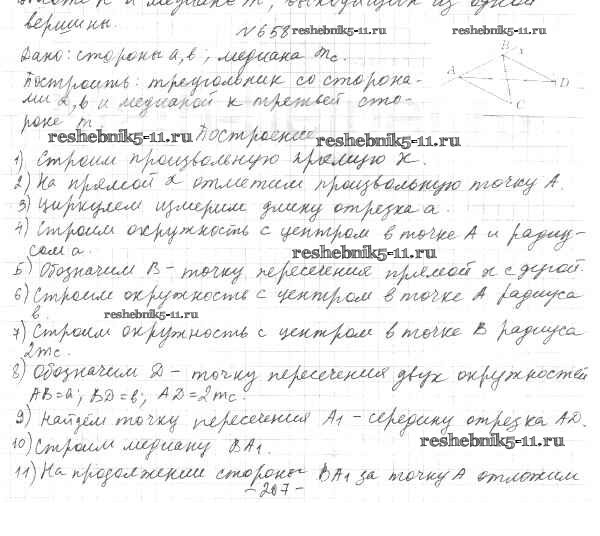 высоте h и медиане m, выходящих из одной
вершины.
№658 reshebnik5-11.ru reshebnik5-11.ru
Дано: стороны a, b; медиана mc.
Построить: треугольник со сторона-
ми a, b и медианой к третьей сто-
роне m.
B x
A D
C
reshebnik5-11.ru Построение. reshebnik5-11.ru
1) Строим произвольную прямую x.
2) На прямой x отметим произвольную точку A.
3) Циркулем измерим длину отрезка a.
4) Строим окружность с центром в точке A и радиу-
сом a. reshebnik5-11.ru
5) Обозначим B – точку пересечения прямой x с дугой.
6) Строим окружность с центром в точке A радиуса
b. reshebnik5-11.ru
7) Строим окружность с центром в точке B радиуса
2mc.
8) Обозначим D – точку пересечения двух окружностей
AB=a; BD=b; AD=2mc.
9) Найдём точку пересечения A1 – середину отрезка AD.
10) Строим медиану BA1. reshebnik5-11.ru
11) На продолжении стороны BA1 за точку A отложим
-207-